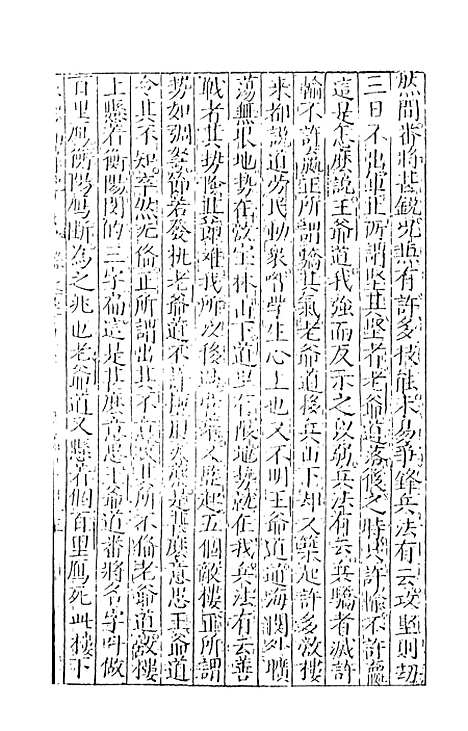 然間番將甚銳兇與有許多技能未易爭鋒兵法有云攻堅則刼
三日不出軍正所謂堅其堅者老爺道落後之時只許輸不許贏
這是怎麽說王爺道我強而反示之以弱兵法有云兵驕者滅許
輸不許贏正所謂驕其氣老爺道移兵山下却又築起許多敵樓
來都說道勞民動衆學生心上也又不明王爺道道海濶外曠
蕩無垠地勢在敵宝林山下道里有限地勢就在我兵法有云善
戰者其勢險其節短我所以後營寨又監起五個敵樓正所謂
勢如彍弩節若發机老爺道不許擅是甚麽意思王爺道
令其不知卒然無俻正所謂出其不意攻其所不俻老爺道敵樓
上懸着衡陽関的三字匾這是甚麽意思王爺道番將名字叫做
百里鴈衡陽鴈斷為之兆也老爺道又懸着個百里鴈死此樓下